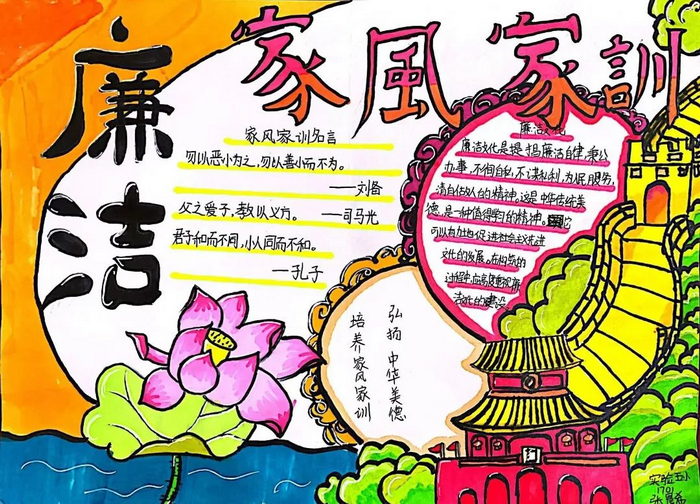 廉洁
家風家訓
家风家训名言
勿以恶小为之,勿以善小而不为。
——刘备
父之爱子,教以义方。——司马光
君子和而不同,小人同而不和。
——孔子
廉洁文化
廉洁文化是提倡廉洁自律,秉公
办事,不徇自私,不谋私利,为民服务,
清白做人的精神。这是中华传统美
德,是一种值得学习的精神。它
可以有力地促进社会主义先进
文化的发展。在构筑的
过程中,应高度重视廉
洁文化的建设
弘扬中华美德
培养家风家训
实验五小
1701